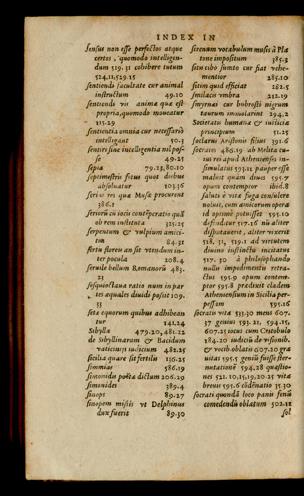 INDEX IN
sensus non esse perfectos atque
certos, quomodo intelligen-
dum 519.31 cohibere tutum
524.11,529.15
sentiendi facultate cur animal
instructum 49.10
sentiendi vis anima quæ est
propria, quomodo moueatur
115.29
sententia omnia cur necessariò
intelligant 50.3
sentire sine intelligentia nil pos-
se 49.25
sepia 79.23,80.10
septimestris fœtus quot diebus
absoluatur 103.36
seriò res qua Musæ procurent
386.1
seriorū cū iocis
ab rem instituta 325.25
serpentum & vulpium amici-
tia 84.31
sertu florem an sit
ter pocula 208.4
seruile bellum Romanorū 483.
23
sesquioctaua ratio num in par
tes æquales diuidi possit 109.
33
seta equorum quibus adhibean
tur 141.24
Sibylla 479.20,481.22
de Sibyllinarum & Bacidum
vaticiniis iudicium 482.25
Sicilia quare sit fertilis 136.25
simmias 586.19
simonidis poëta dictum 206.29
simonides 389.4
sinope 89.27
sinopem missis vt Delphinus
dux fuerit 89.30
sirenam vocabulum musis à Pla
tone impositum 385.3
situ cibo sumto cur fiat vehe-
mentior 285.10
sitim quid efficiat 282.5
smilacis vmbra 212.19
smyrnæi cur bubrosti nigrum
taurum immolarint 294.2
Societatis humanæ & iustitiæ
principium 51.25
socclarus Aristonis filius 391.6
socratis 486.19 ab Melita cu-
ius rei apud Athenienses in-
simulatus 593.11 pauper esse
maluit quàm diues 595.7
opum contemptor ibid.8
saluti è vita fuga consulere
noluit, cum amicorum opera
id optimè potuisset 595.10
diffundaus 517.16 nil aliter
disputauerit, aliter vixerit
518.31, 519.1 ad virtutem
diuino instinctu incitatus
517.30 à philosophando
nullis impedimentis retra-
ctus 595.9 opum contem-
ptor 595.8 prædixit cladem
Atheniensum in Sicilia per-
pessem 595.16
socratis vita 533.30 mens 607.
37 genius 593.21, 594.15,
607.25 iocus cum Cestobulo
184.20 iudiciū de visionib.
& vocib. oblatis 607.20 gra
uitas 595.5 geniū fuisse ster-
nutationē 594.28 quæstio-
nes 521.10,15,19,20.25 vita
breuis 595.6 cōdēnatio 35.30
socrati quondā loco panis fenū
comedendū oblatum 502.12
sol